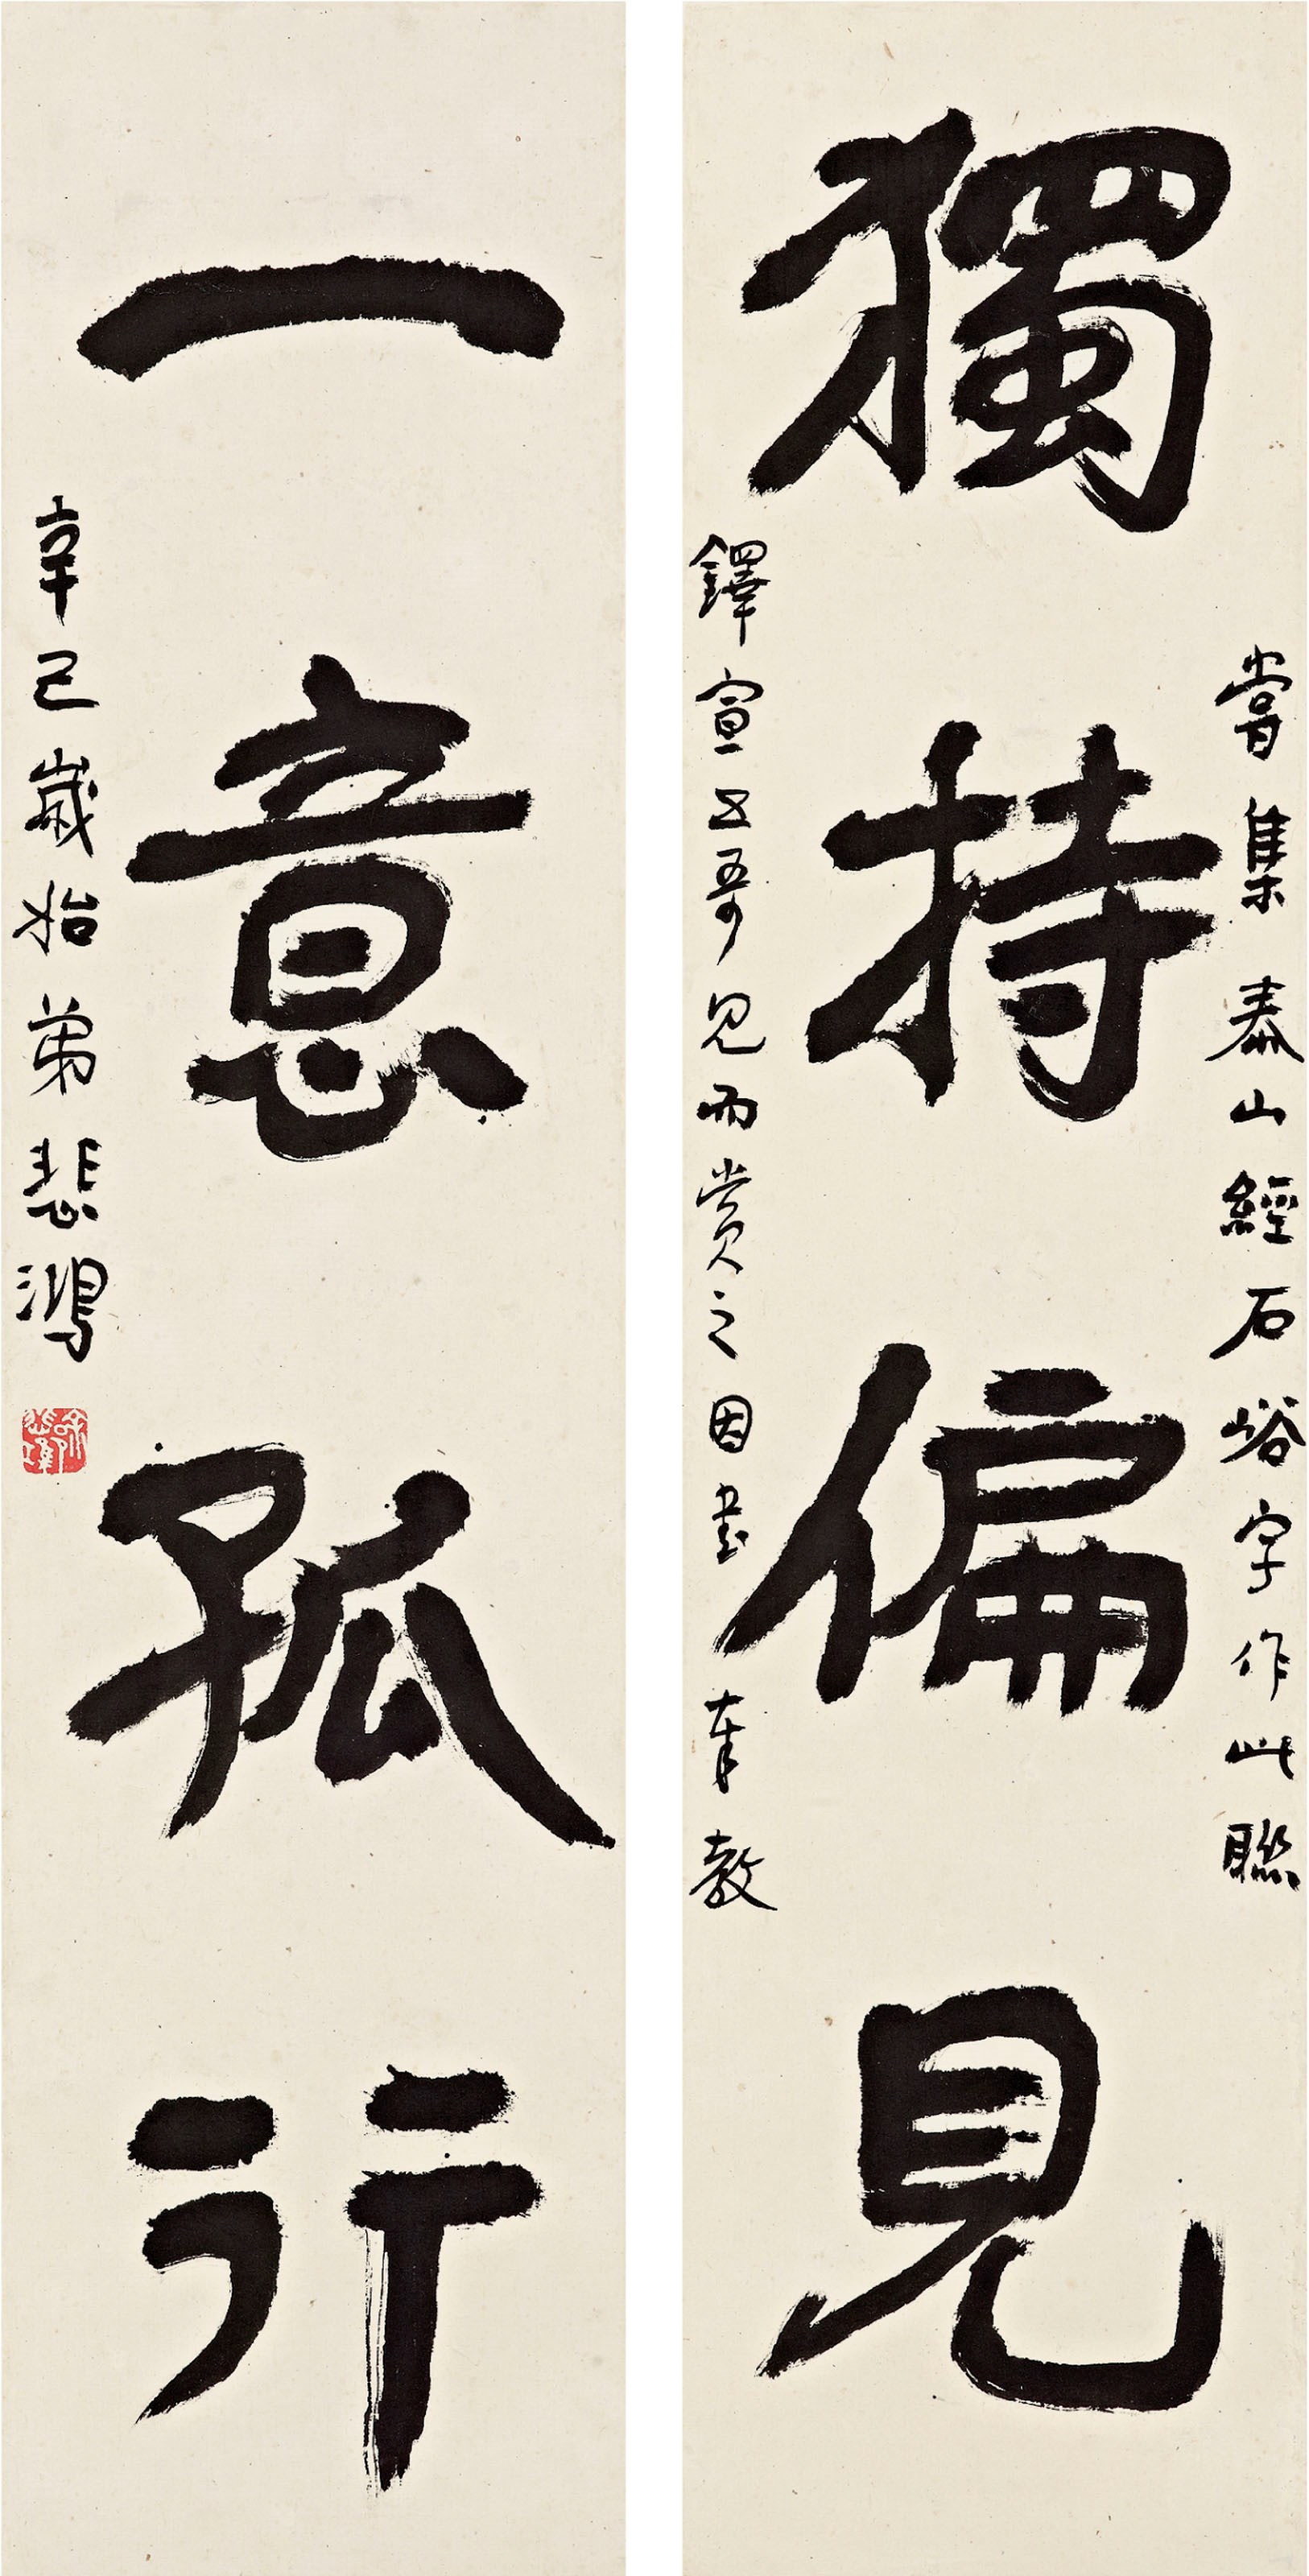 獨持偏見
嘗集泰山經石峪字作此聯
鐸宣五哥見而賞之因書奉教
一意孤行
辛巳歲始弟悲鴻